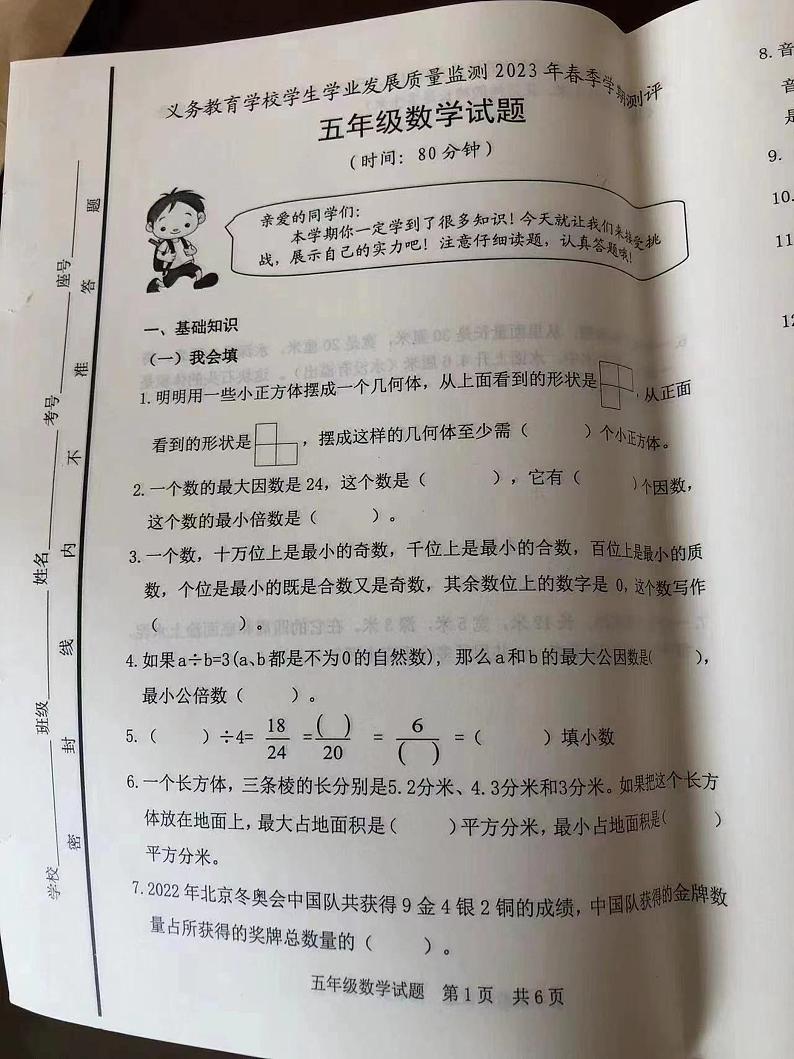 义务教育学校学生学业发展质量监测 2023 年春季学期测评
五年级数学试题
(时间: 80 分钟)
亲爱的同学们:
本学期你一定学到了很多知识! 今天就让我们来接受挑
战, 展示自己的实力吧! 注意仔细读题, 认真答题哦!
一、基础知识
(一) 我会填
1. 明明用一些小正方体摆成一个几何体, 从上面看到的形状是 , 从正面
看到的形状是 , 摆成这样的几何体至少需 ( ) 个小正方体。
2. 一个数的最大因数是 24, 这个数是 ( ) , 它有 ( ) 个因数,
这个数的最小倍数是 ( ) 。
3. 一个数, 十万位上是最小的奇数, 千位上是最小的合数, 百位上是最小的质
数, 个位是最小的既是合数又是奇数, 其余数位上的数字是 0, 这个数写作
( ) 。
4. 如果a÷b=3(a、b都是不为0的自然数), 那么a和b的最大公因数是( ),
最小公倍数 ( ) 。
5. ( ) ÷4= 18/24 = ( )/20 = 6/( ) = ( ) 填小数
6. 一个长方体, 三条棱的长分别是5.2分米、4.3分米和3分米。如果把这个长方
体放在地面上, 最大占地面积是( )平方分米, 最小占地面积是( )
平方分米。
7. 2022 年北京冬奥会中国队共获得 9 金 4 银 2 铜的成绩, 中国队获得的金牌数
量占所获得的奖牌总数量的 ( ) 。
五年级数学试题 第 1 页 共 6 页
学校 班级 姓名 考号 座号
密 封 线 内 不 准 答 题
8. 音
音
是
9.
10.
11
12